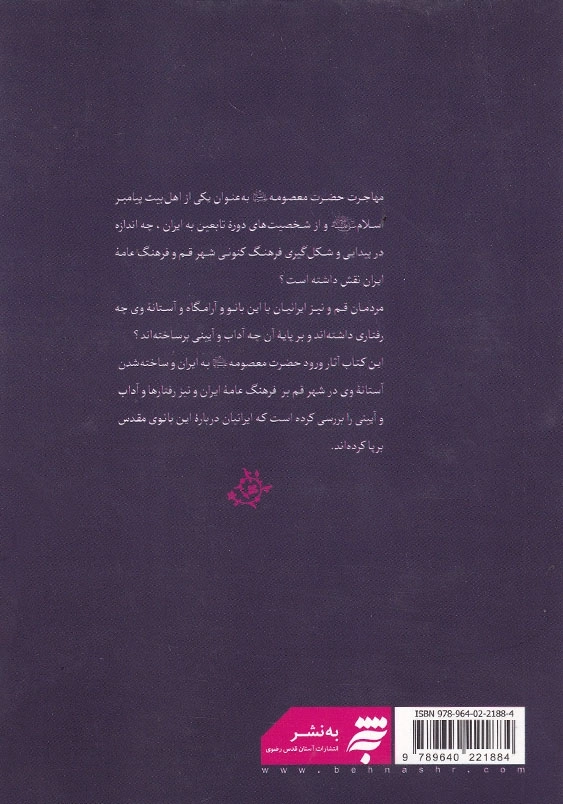 مهاجرت حضرت معصومه به‌عنوان یکی از اهل‌بیت پیامبر
اسلام و از شخصیت‌های دورۀ تابعین به ایران ، چه اندازه
در پیدایی و شکل‌گیری فرهنگ کنونی شهر قم و فرهنگ عامۀ
ایران نقش داشته است ؟
مردمان قم و نیز ایرانیان با این بانو و آرامگاه و آستانۀ وی چه
رفتاری داشته‌اند و بر پایۀ آن چه آداب و آیینی برساخته‌اند ؟
این کتاب آثار ورود حضرت معصومه به ایران و ساخته‌شدن
آستانۀ وی در شهر قم بر فرهنگ عامۀ ایران و نیز رفتارها و آداب
و آیینی را بررسی کرده است که ایرانیان دربارۀ این بانوی مقدس
برپا کرده‌اند.
به‌نشر
انتشارات آستان قدس رضوی
ISBN 978-964-02-2188-4
9 789640 221884
www.behnashr.com